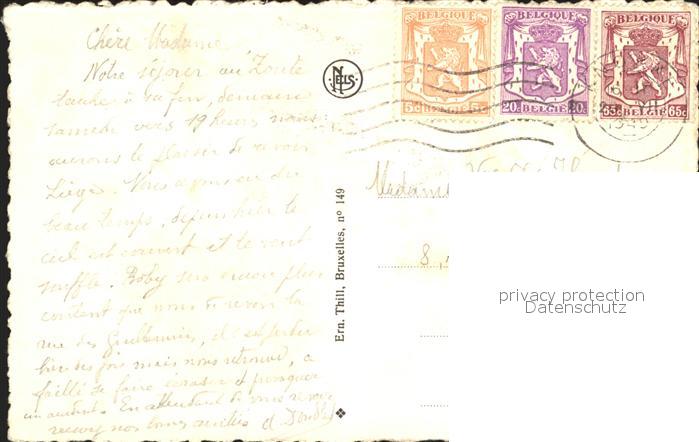 Chère Madame,
Notre séjour au Zoute
touche à sa fin, demain
samedi vers 19 heures nous
aurons le plaisir de revoir
Liège. Nous avons eu du
beau temps, depuis hier le
ciel est couvert et le vent
souffle. Boby sera encore plus
content que nous de revoir la
rue des Guillemins,
bien des fois mais nous retrouve, a
failli se faire écraser et provoquer
un accident. En attendant de vous revoir
recevez nos bonnes amitiés
NELS
Ern. Thill, Bruxelles, nº 149
BELGIQUE
5c 5c
BELGIE
BELGIQUE
20c 20c
BELGIE
BELGIQUE
65c 65c
BELGIE
Madame
8,
privacy protection
Datenschutz